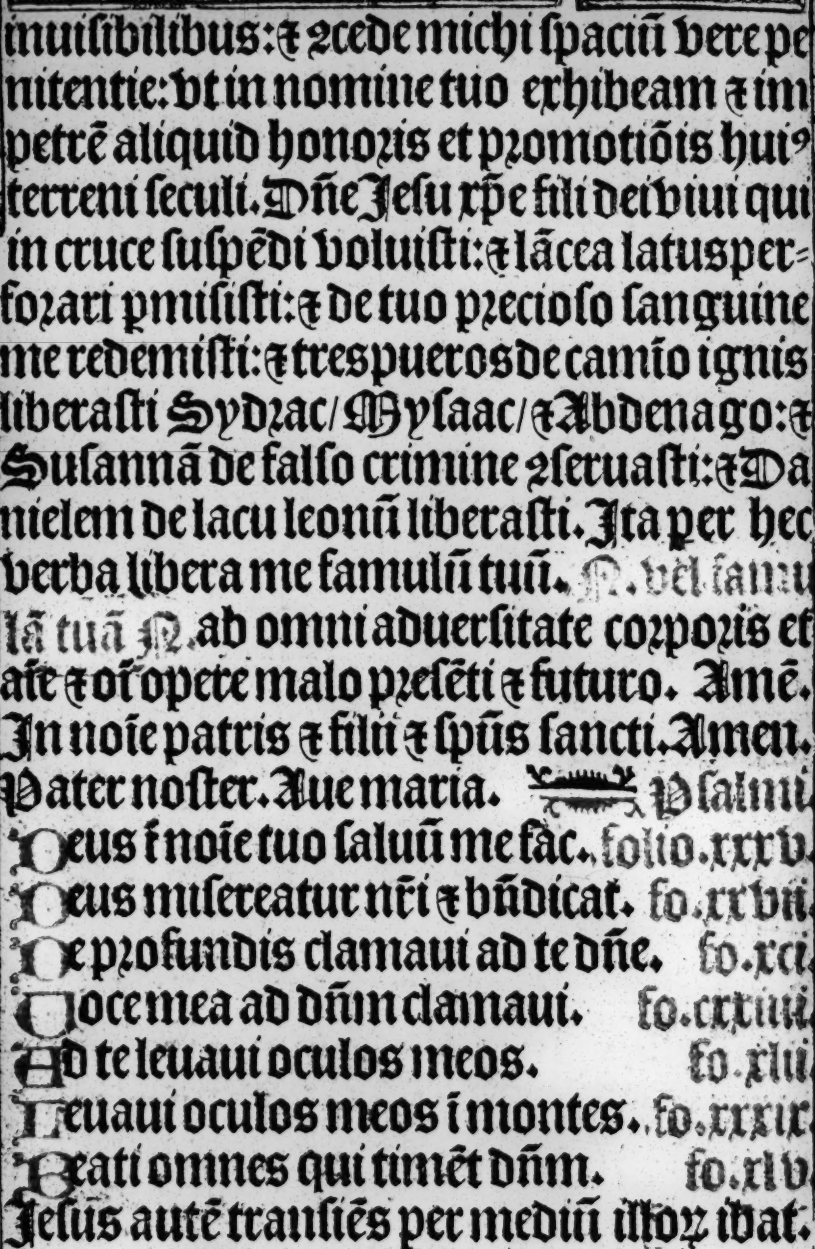 inuiſibilibus:⁊ ꝯcede michi ſpaciū vere pe
nitentie: vt in nomine tuo exhibeam ⁊ im
petrē aliquid honoꝛis et pꝛomotiōis huiꝰ
terreni ſeculi. Dn̄e Jeſu xp̄e fili dei viui qui
in cruce ſuſpēdi voluiſti:⁊ lācea latus per⸗
foꝛari ꝑmiſiſti:⁊ de tuo pꝛecioſo ſanguine
me redemiſti:⁊ tres pueros de camīo ignis
liberaſti Sydꝛac/ Myſaac/ ⁊ Abdenago:⁊
Suſannā de falſo crimine ꝯſeruaſti:⁊ Da
nielem de lacu leonū liberaſti. Ita per hec
verba libera me famulū tuū. N. vel famu
lā tuā N. ab omni aduerſitate coꝛpoꝛis et
aīe ⁊ oī opere malo pꝛeſēti ⁊ futuro. Amē.
In noīe patris ⁊ filii ⁊ ſpūs ſancti. Amen.
Pater noſter. Aue maria. Pſalmi
Deus ī noīe tuo ſaluū me fac. folio.xxxv.
Deus miſereatur nr̄i ⁊ bn̄dicat. fo.xxvii.
De pꝛofundis clamaui ad te dn̄e. fo.xci.
Uoce mea ad dn̄m clamaui. fo.cxxiiii.
Ad te leuaui oculos meos. fo.xlii.
Leuaui oculos meos ī montes. fo.xxxix.
Beati omnes qui timēt dn̄m. fo.xlv.
Jeſus autē tranſiēs per mediū illoꝝ ibat.